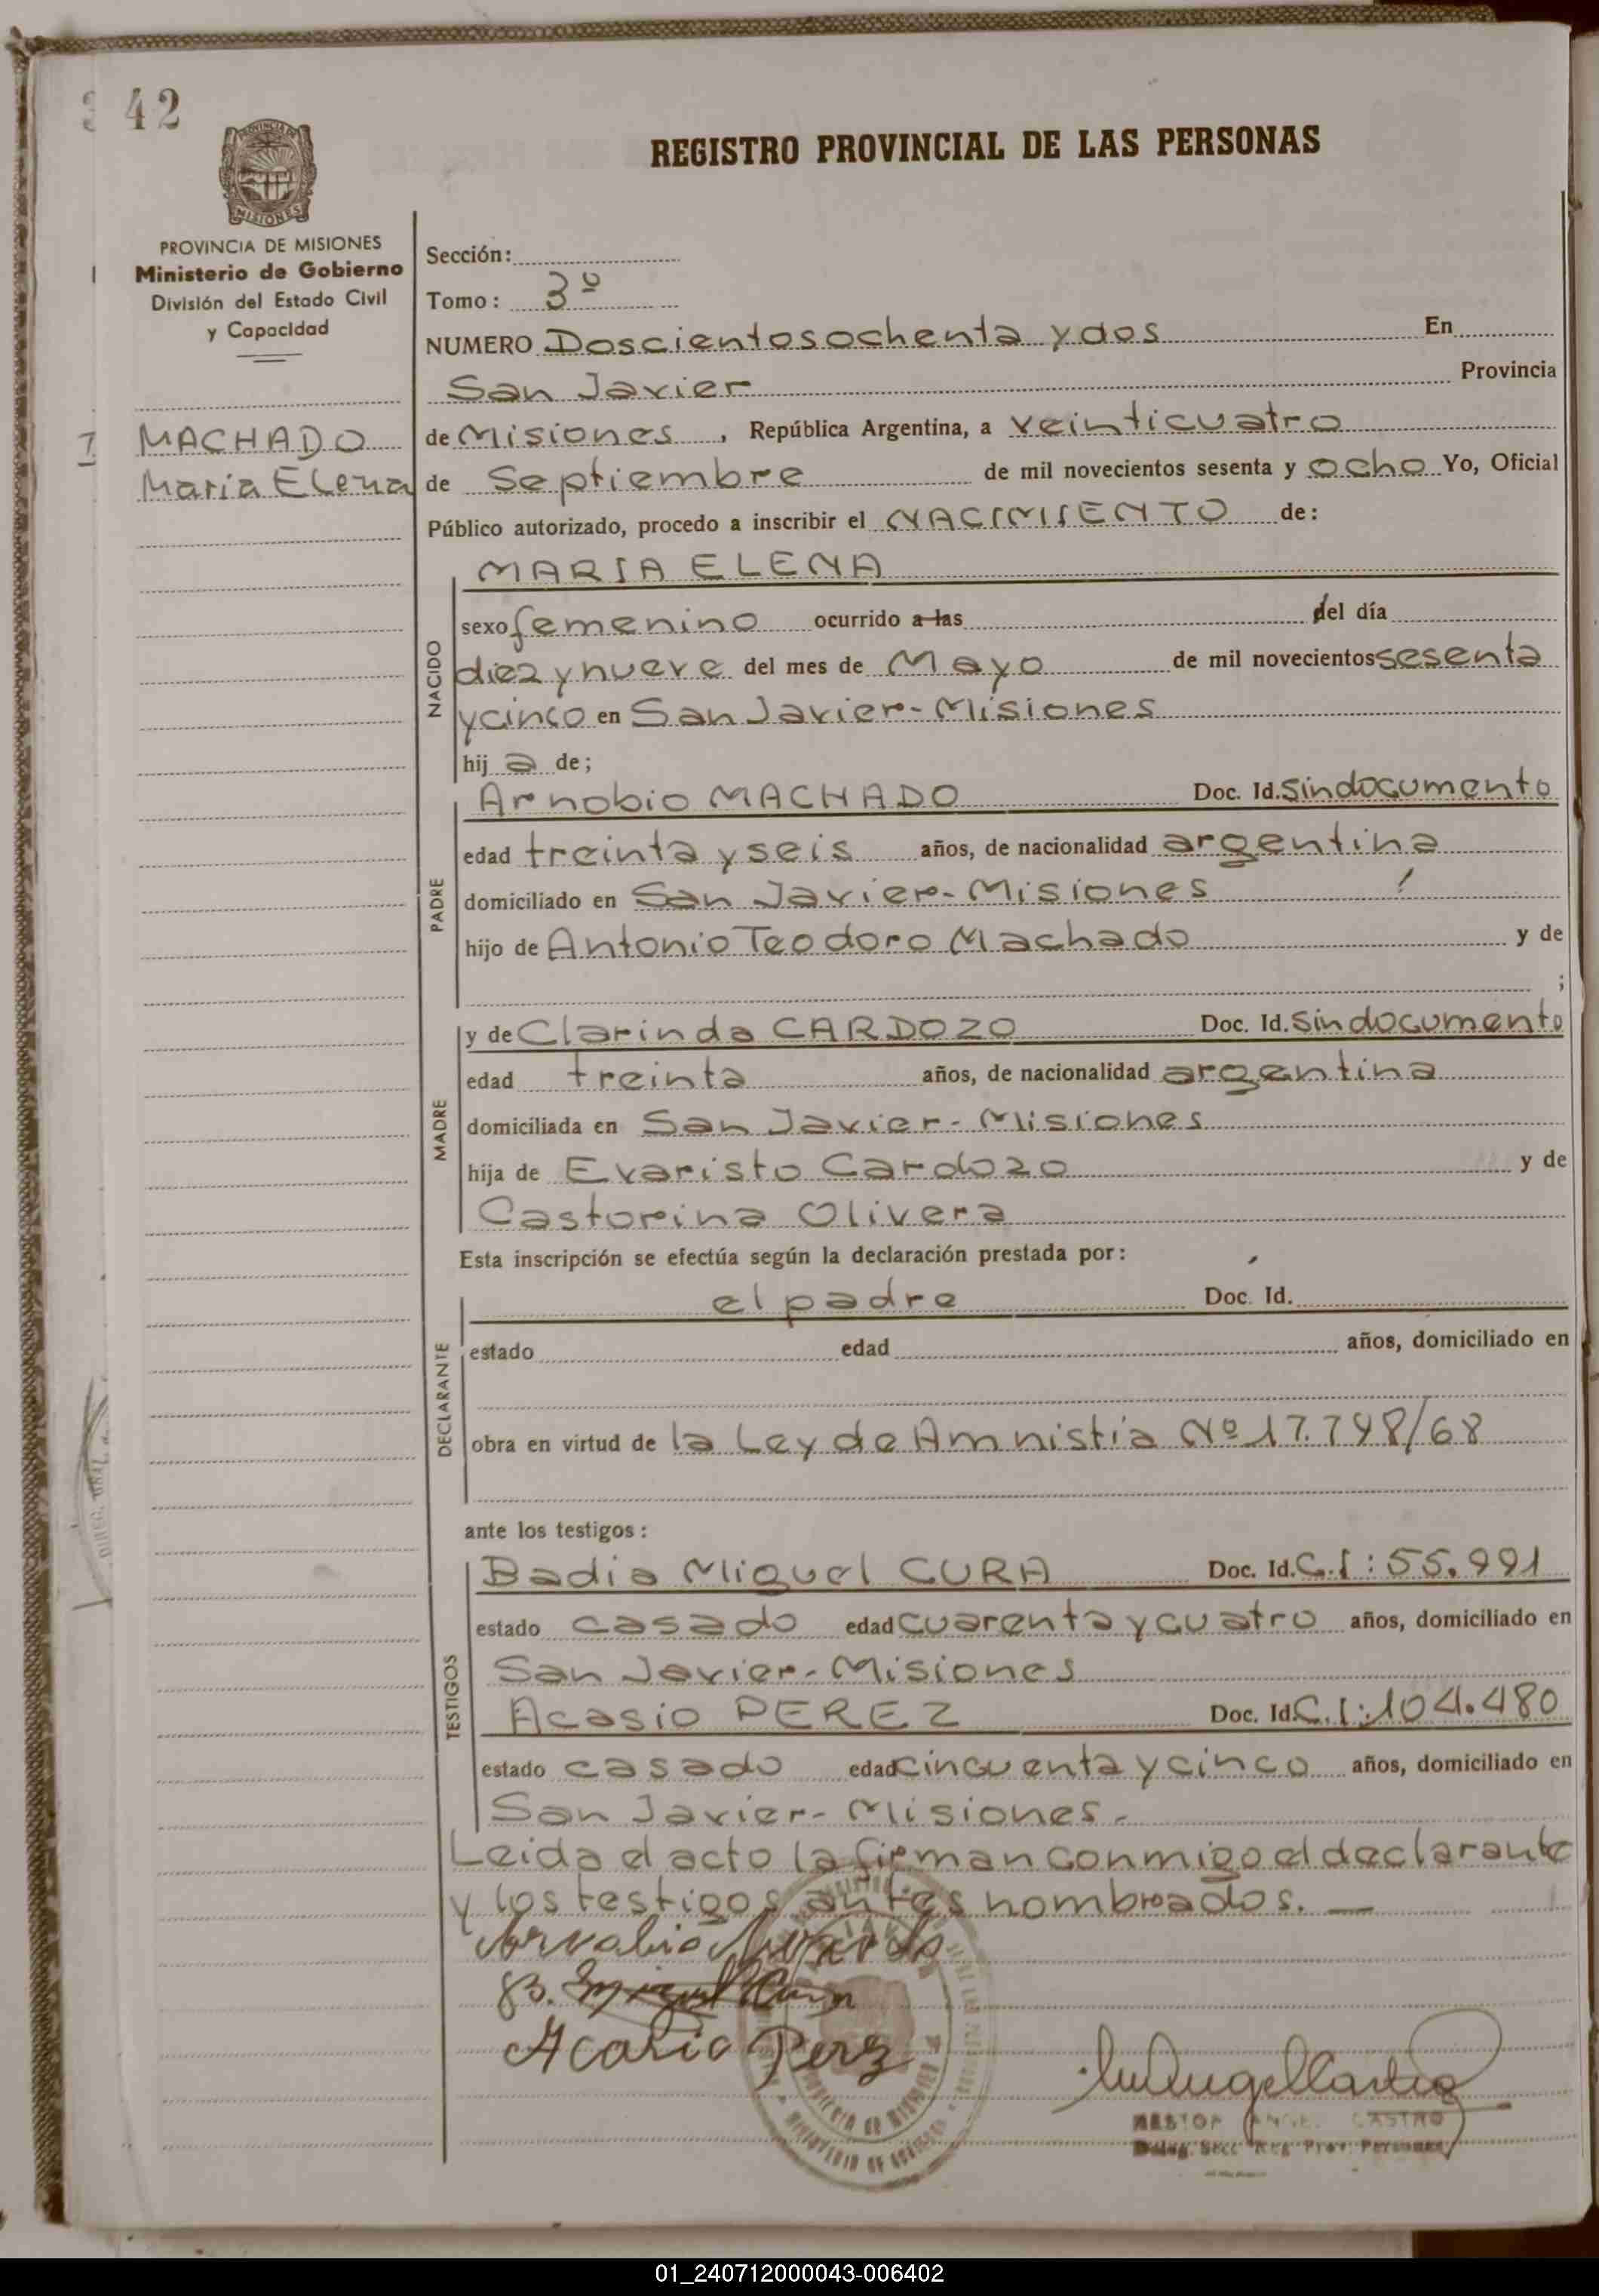 42
PROVINCIA DE MISIONES
Ministerio de Gobierno
División del Estado Civil
y Capacidad
REGISTRO PROVINCIAL DE LAS PERSONAS
Sección:
Tomo: 3º
NUMERO Doscientos ochenta y dos En
San Javier Provincia
MACHADO
Maria Elena
de Misiones, República Argentina, a veinticuatro
de Septiembre de mil novecientos sesenta y ocho Yo, Oficial
Público autorizado, procedo a inscribir el NACIMIENTO de:
MARIA ELENA
NACIDO
sexo femenino ocurrido a las del día
diez y nueve del mes de Mayo de mil novecientos sesenta
y cinco en San Javier - Misiones
hij a de;
PADRE
Arnobio MACHADO Doc. Id. sin documento
edad treinta y seis años, de nacionalidad argentina
domiciliado en San Javier - Misiones
hijo de Antonio Teodoro Machado y de
;
MADRE
y de Clarinda CARDOZO Doc. Id. sin documento
edad treinta años, de nacionalidad argentina
domiciliada en San Javier - Misiones
hija de Evaristo Cardozo y de
Castorina Olivera
Esta inscripción se efectúa según la declaración prestada por:
DECLARANTE
el padre Doc. Id.
estado edad años, domiciliado en
obra en virtud de la Ley de Amnistia Nº 17.798/68
ante los testigos:
TESTIGOS
Badia Miguel CURA Doc. Id. C.I: 55.991
estado casado edad cuarenta y cuatro años, domiciliado en
San Javier - Misiones
Acasio PEREZ Doc. Id. C.I: 104.480
estado casado edad cincuenta y cinco años, domiciliado en
San Javier - Misiones.
Leida el acto la firman conmigo el declarante
y los testigos antes nombrados. —
B. Miguel Cura
Acasio Perez
NESTOR ANGEL CASTRO
Deleg. Secc. Reg. Prov. Personas
01_240712000043-006402